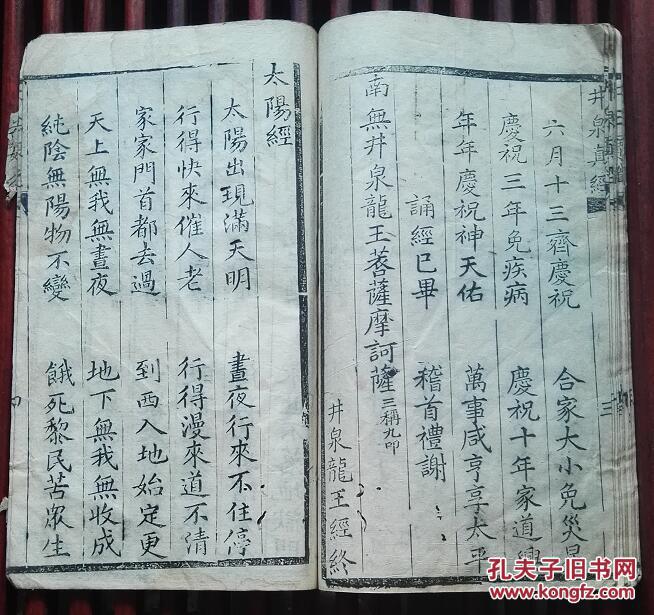 井泉真經
六月十三齊慶祝 合家大小免災
慶祝三年免疾病 慶祝十年家道
年年慶祝神天佑 萬事咸亨享太平
誦經已畢 稽首禮謝
南無井泉龍王菩薩摩訶薩三稱九叩
井泉龍王經終
太陽經
太陽出現滿天明 晝夜行來不住停
行得快來催人老 行得漫來道不清
家家門首都去過 到西入地始定更
天上無我無晝夜 地下無我無收成
純陰無陽物不變 餓死黎民苦眾生
三
孔夫子旧书网